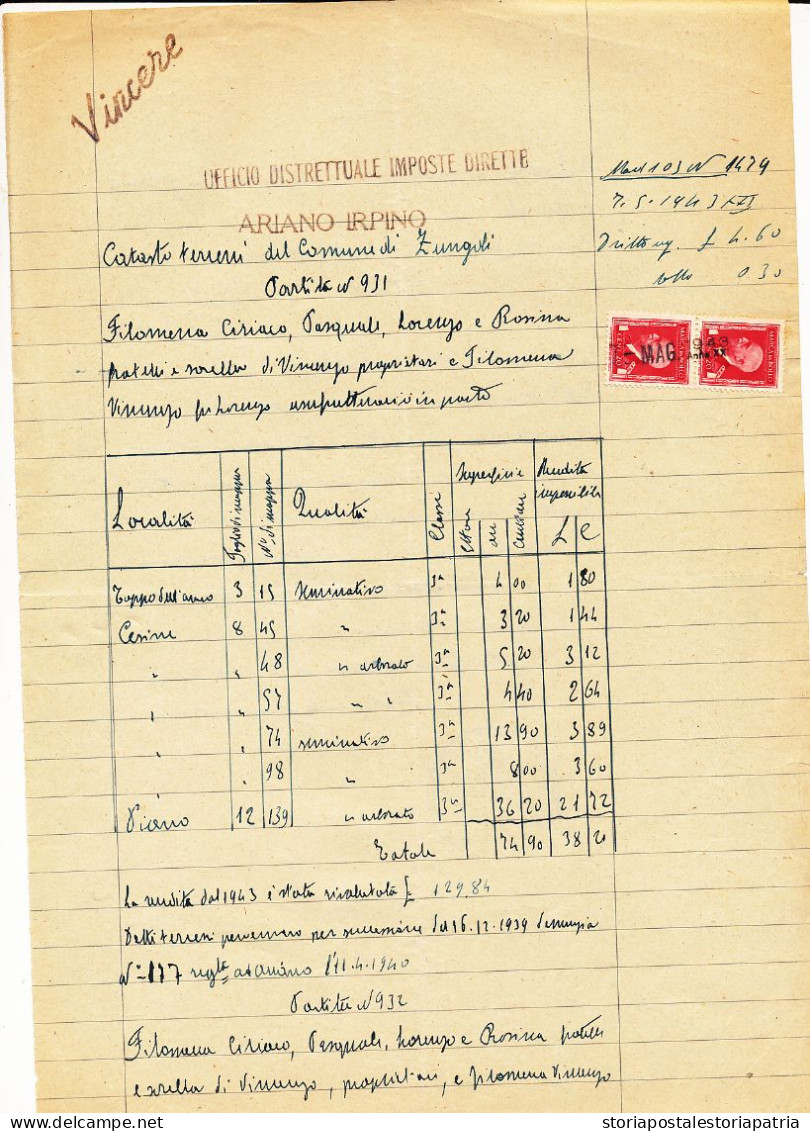 Vincere
UFFICIO DISTRETTUALE IMPOSTE DIRETTE
ARIANO IRPINO
Mod 103 N 1479
7.5.1943 XXI
Diritto ug. £ 4.60
bollo 0.30
Catasto terreni del Comune di Zungoli
Partita N 931
MARCA DA BOLLO CENT. 20 MARCA DA BOLLO CENT. 20
- MAG. 1943 Anno XX
Filomena Ciriaco, Pasquale, Lorenzo e Rosina
fratelli e sorella di Vincenzo proprietari e Filomena
Vincenzo fu Lorenzo usufruttuario in parte
Località Foglio di mappa N° di mappa Qualità Classe Superficie Rendita imponibile
ettari are centiare L C
Toppo dell'anno 3 15 seminativo 3ª 4 00 1 80
Cesine 8 45 " 3ª 3 20 1 44
" " 48 " arborato 3ª 5 20 3 12
" " 57 " " 3ª 4 40 2 64
" " 74 seminativo 3ª 13 90 3 89
" " 98 " 3ª 8 00 3 60
Piano 12 139 " arborato 3ª 36 20 21 72
Totale 74 90 38 20
La rendita dal 1943 è stata rivalutata £ 129,84
Detti terreni pervennero per successione del 16.12.1939 denunzia
N° 177 regta ad Ariano l'11.4.1940
Partita N 932
Filomena Ciriaco, Pasquale, Lorenzo e Rosina fratelli
e sorella di Vincenzo, proprietari, e Filomena Vincenzo
storiapostalestoriapatria